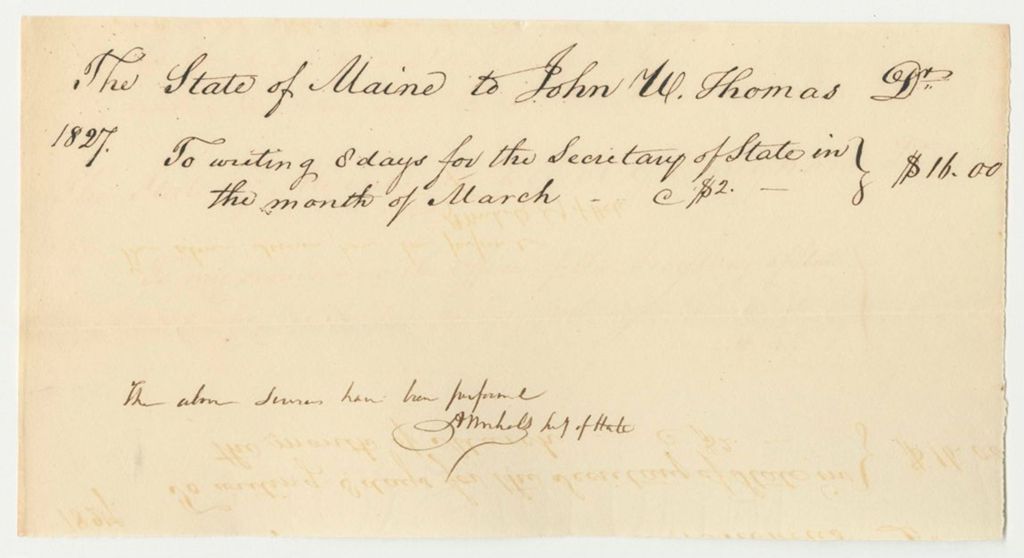 The State of Maine to John W. Thomas Dr.
1827. To writing 8 days for the Secretary of State in } $16.00
the month of March - @ $2. -
The above services have been performed
A Nichols Secy of State